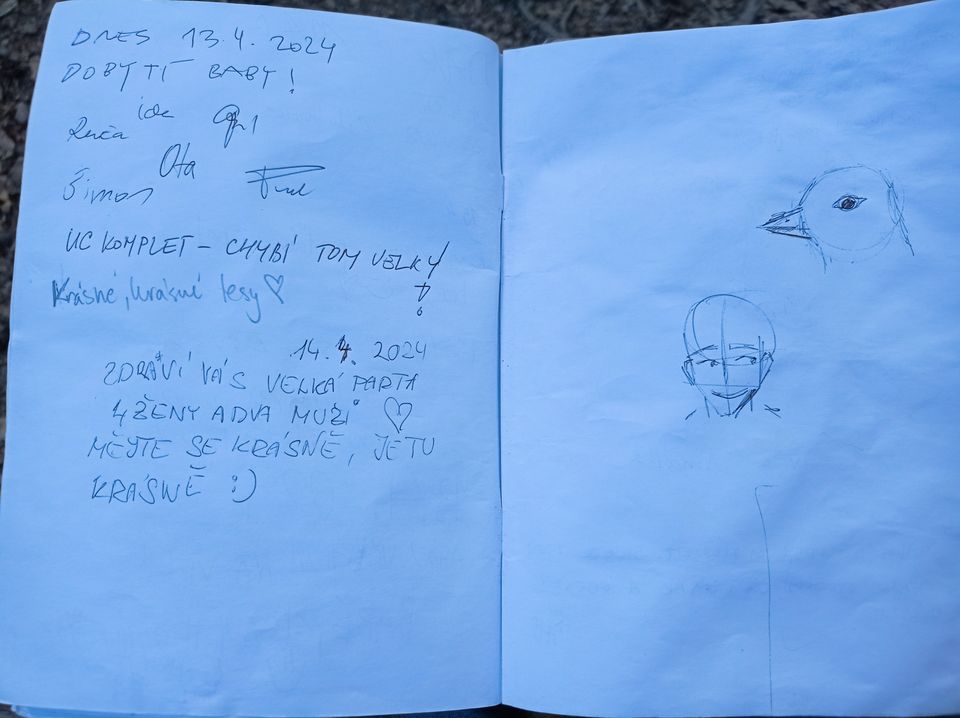 DNES 13.4.2024
DOBYTÍ BABY!
Ruča
Ota
Šimon
UC KOMPLET – CHYBÍ TOM VELKÝ!
Krásné, krásné lesy ♡
14.4. 2024
ZDRAVÍ VÁS VELKÁ PARTA
4 ŽENY A DVA MUŽI ♡
MĚJTE SE KRÁSNĚ, JE TU
KRÁSNĚ :)